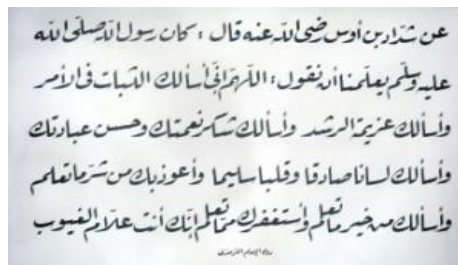 عن شدّاد بن أوس رضي الله عنه قال : كان رسول الله صلّى الله
عليه وسلّم يعلّمنا أن نقول : اللهمّ إنّي أسألك الثبات في الأمر
وأسألك عزيمة الرشد وأسألك شكر نعمتك وحسن عبادتك
وأسألك لسانا صادقا وقلبا سليما وأعوذ بك من شرّ ما تعلم
وأسألك من خير ما تعلم وأستغفرك ممّا تعلم إنّك أنت علّام الغيوب
رواه الإمام الترمذي